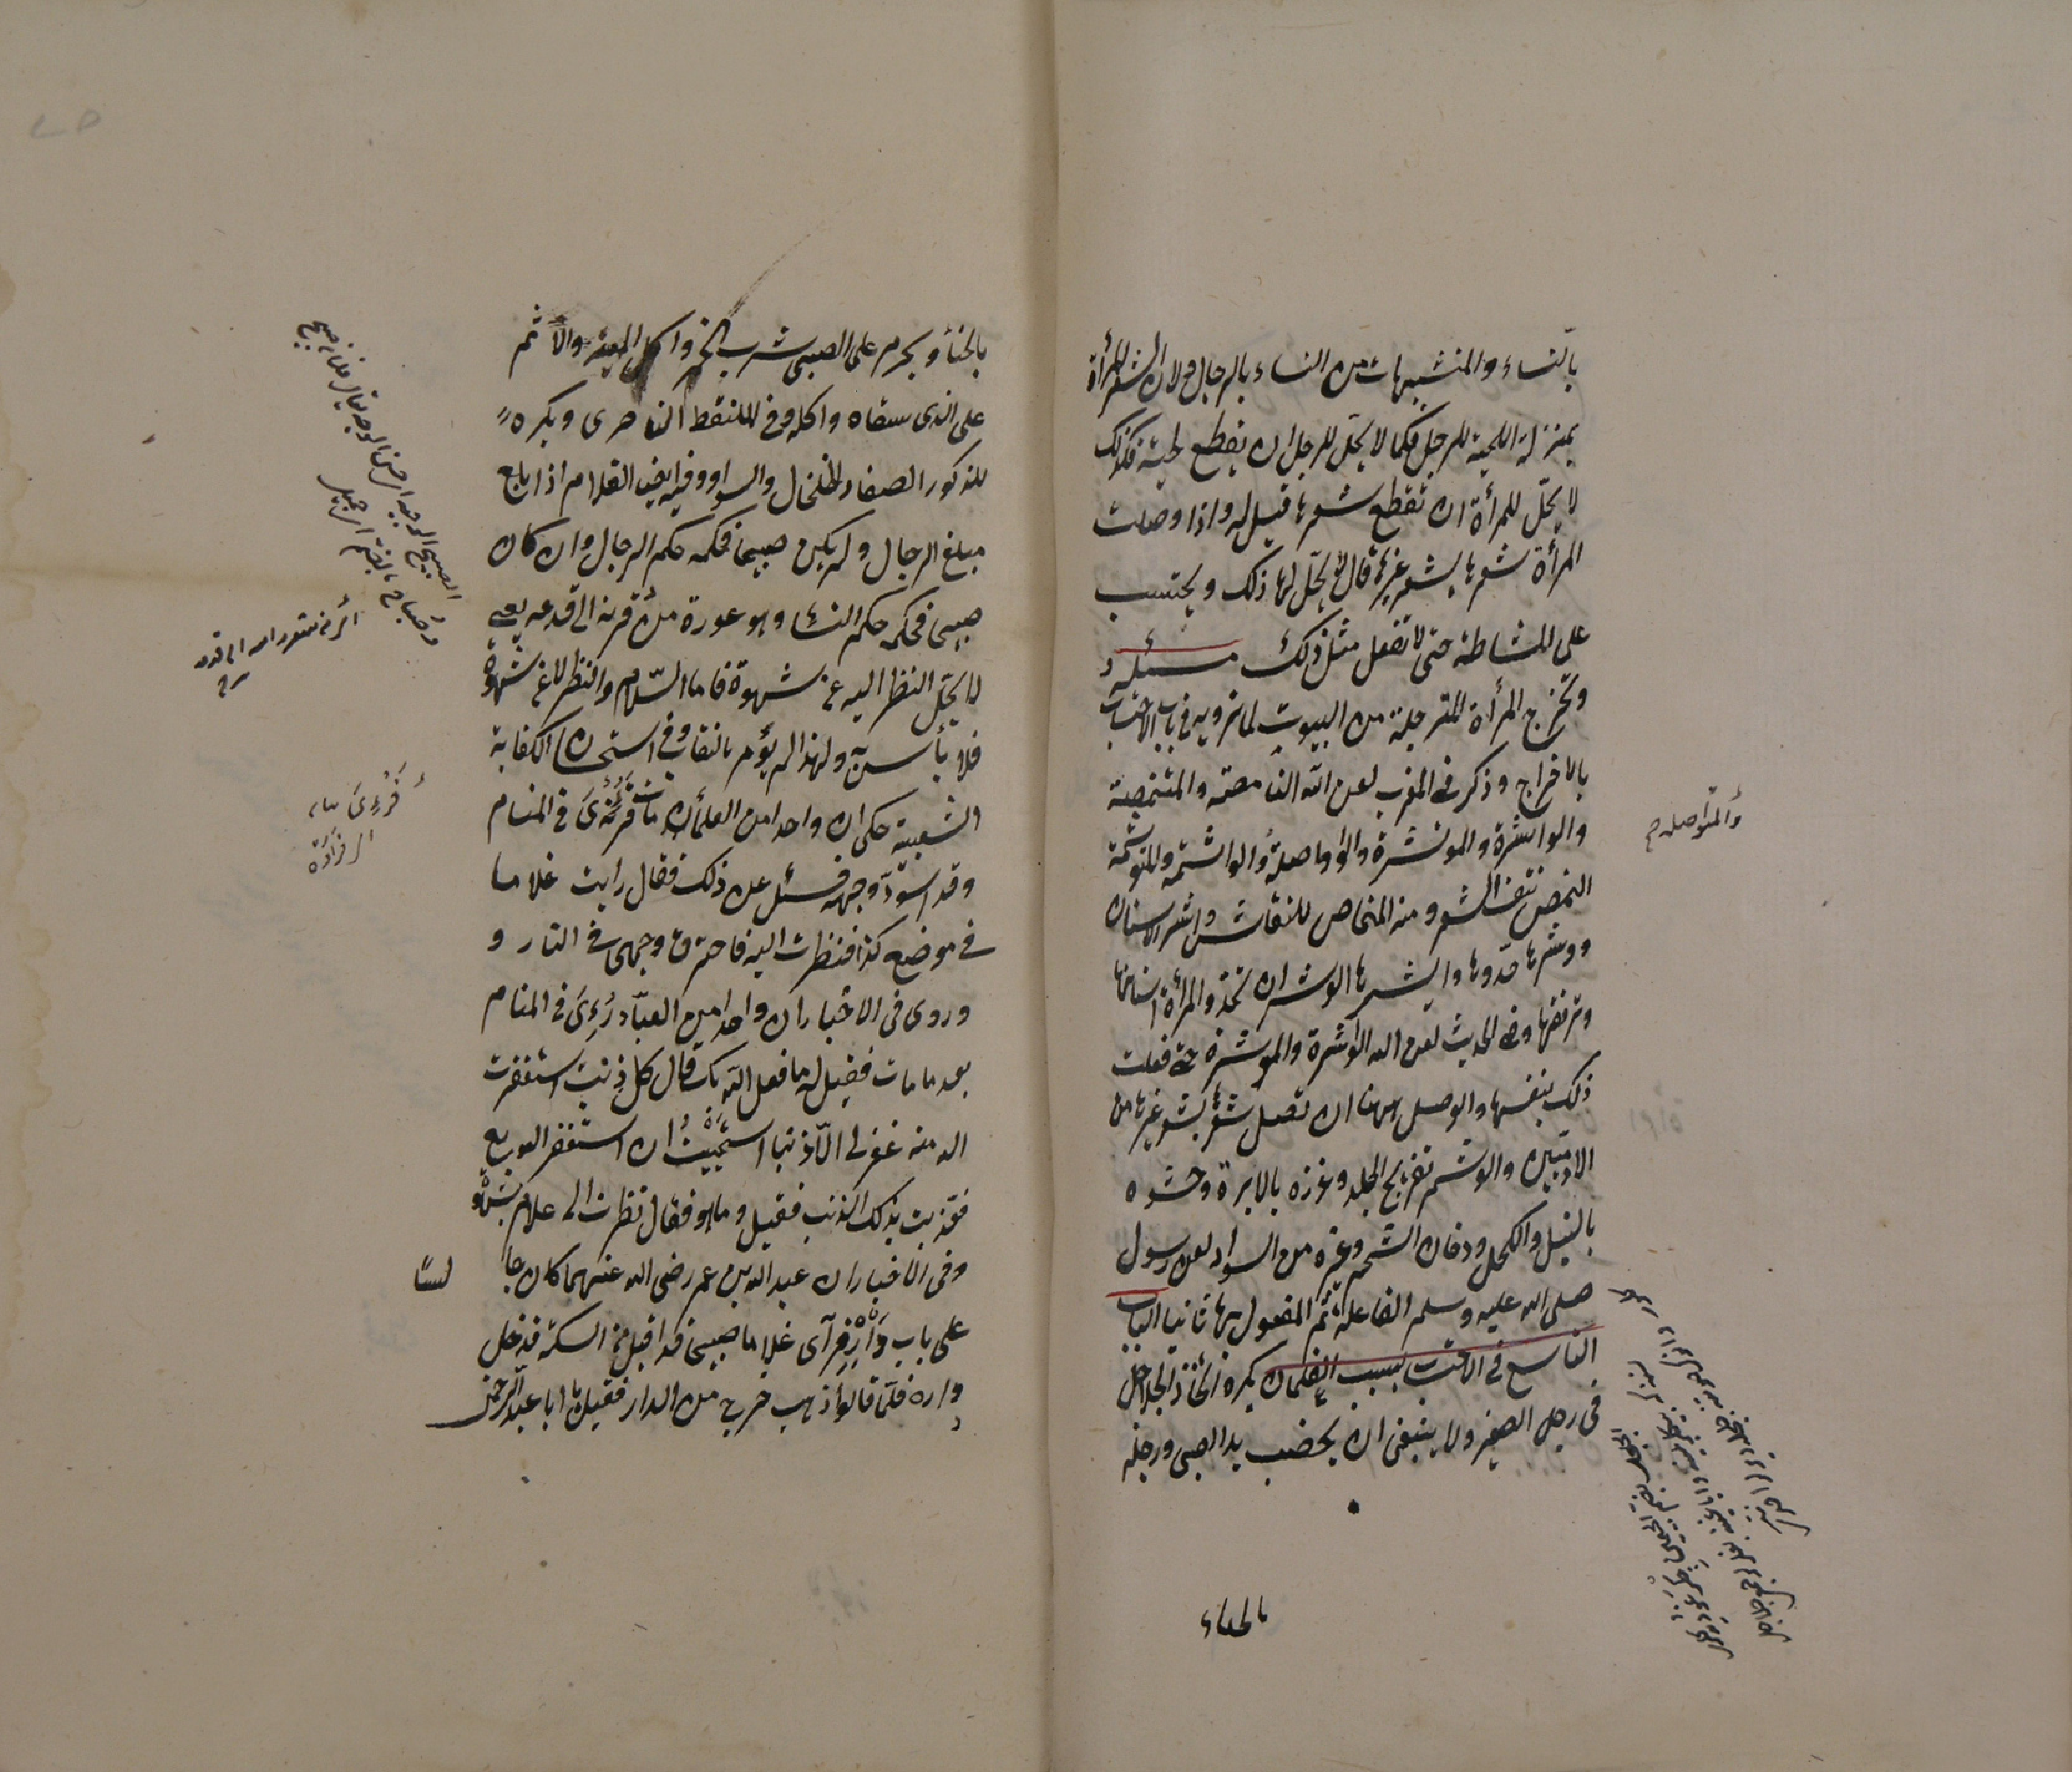 بالنساء والمتشبهات من النساء بالرجال ولان الشعر للمرأة
بمنزلة اللحية للرجل فكما لا يحل للرجل ان يقطع لحيته فكذلك
لا يحلّ للمرأة ان تقطع شعرها قيل له واذا وصلت
المرأة شعرها بشعر غيرها قال لا يحلّ لها ذلك ويحتسب
على المشاطة حتى لا تفعل مثل ذلك مسئلة
وتخرج المرأة المترجلة من البيوت لما نرويه في باب الاحتساب
بالاخراج وذكر في المغرب لعن الله النامصة والمتنمصة
والواشرة والموتشرة والواصلة والواشمة والمتوشمة
النمص نتف الشعر ومنه المنماص للنقاش واشر الاسنان
ووشرها حدّدها والوشر ان تحدد المرأة اسنانها
وترققها وفي الحديث لعن الله الواشرة والموتشرة فعلت
ذلك بنفسها والوصل ههنا ان تصل شعرها بشعر غيرها من
الادميين والوشم تقريح الجلد وغرزه بالابرة وحشوه
بالنيل والكحل ودخان الشحم وغيره من السواد لعن رسول
صلى الله عليه وسلم الفاعلة ثم المفعول بها ثانيا الباب
التاسع في الاحتساب بسبب الغلمان يكره اتخاذ الجلاجل
في رجل الصغير ولا ينبغي ان يخضب يد الصبي ورجله
والمتواصلة
بالحناء
بالحناء ويحرم على الصبي شرب الخمر واكل الميتة والاثم
على الذي سقاه واكله وفي الملتقط الناصرى ويكره
للذكور الصغار الخلخال والسوار وفيه ايضا الغلام اذا بلغ
مبلغ الرجال ولم يكن صبيحا فحكمه حكم الرجال وان كان
صبيحا فحكمه حكم النساء وهو عورة من قرنه الى قدمه يعني
لا يحلّ النظر اليه عن شهوة فاما السّلام والنظر لا عن شهوة
فلا بأس به ولهذا لم يؤمر بالنقاب وفي استحسان الكفاية
الشعبية حكى ان واحدا من العلماء مات فرئى في المنام
وقد اسودّ وجهه فسئل عن ذلك فقال رايت غلاما
في موضع كذا فنظرت اليه فاحترق وجهى في النار و
وروى في الاخبار ان واحدا من العبّاد رُءِىَ في المنام
بعد ما مات فقيل له ما فعل الله بك قال كل ذنب استغفرت
الله منه غفر لى الّا ذنبا استحييت ان استغفر الله
فعذبت بذلك الذنب فقيل وما هو فقال نظرت الى غلام بشهوة
وفى الاخبار ان عبد الله بن عمر رضى الله عنهما كان جا
لسًا
على باب دَارِه فرآى غلاما صبيحا قد اقبل من السكة فدخل
داره فلمّا قالوا ذهب خرج من الدار فقيل يا ابا عبد الرحمن